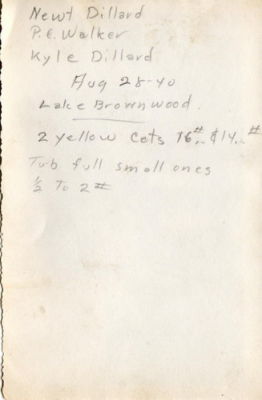 Newt Dillard
P.C. Walker
Kyle Dillard
Aug 28-40
Lake Brownwood.
2 yellow Cats 16# & 14#
Tub full small ones
½ To 2#